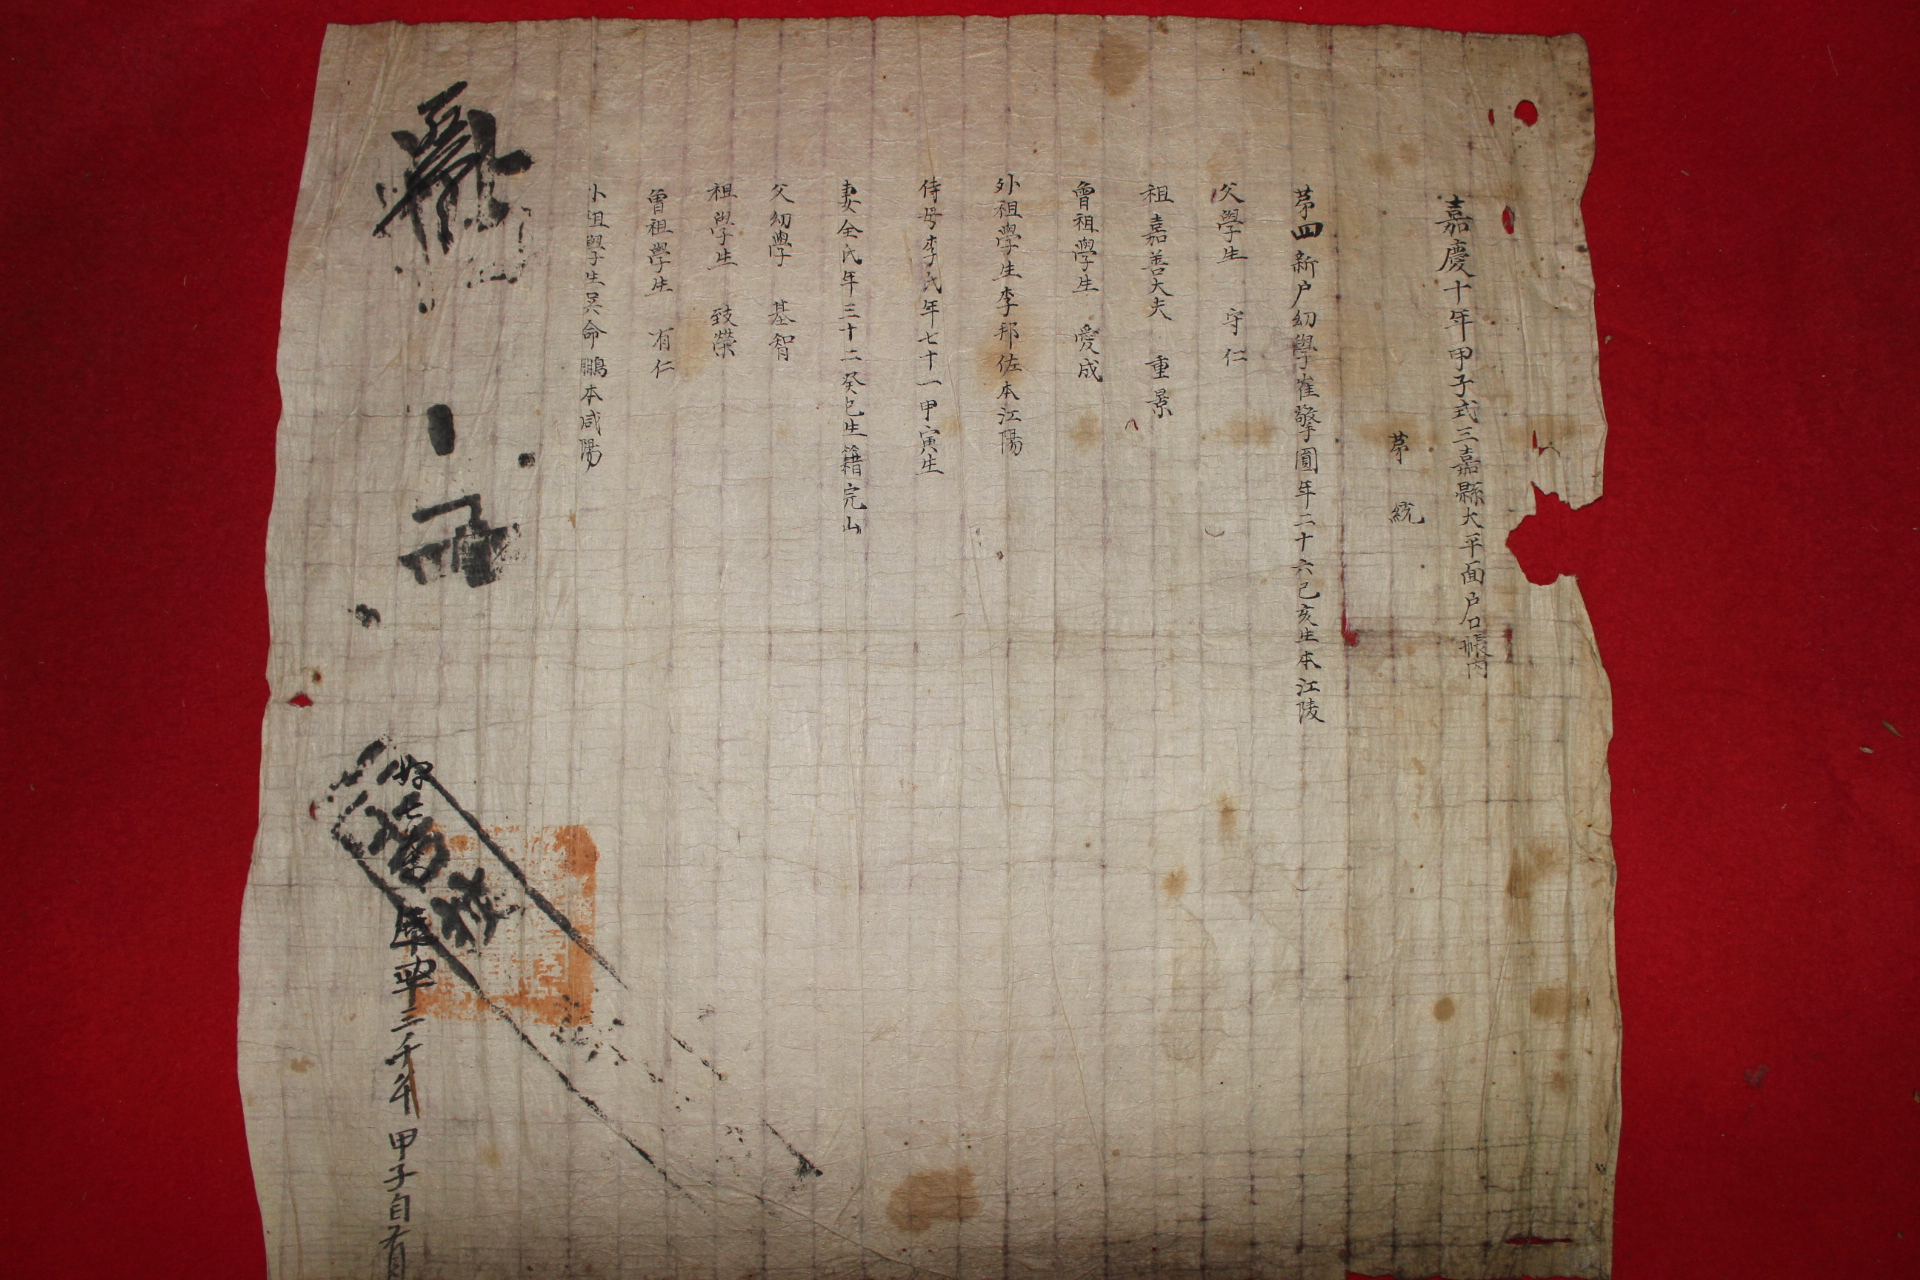 嘉慶十年甲子式三嘉縣大平面户口帳內
第 統
第四新户幼學崔擎圓年二十六己亥生本江陵
父學生 守仁
祖嘉善大夫 重景
曾祖學生 愛成
外祖學生李邦佐本江陽
侍母李氏年七十一甲寅生
妻全氏年三十二癸巳生籍完山
父幼學 基智
祖學生 致榮
曾祖學生 有仁
外祖學生吳命鵬本咸陽
甲子自